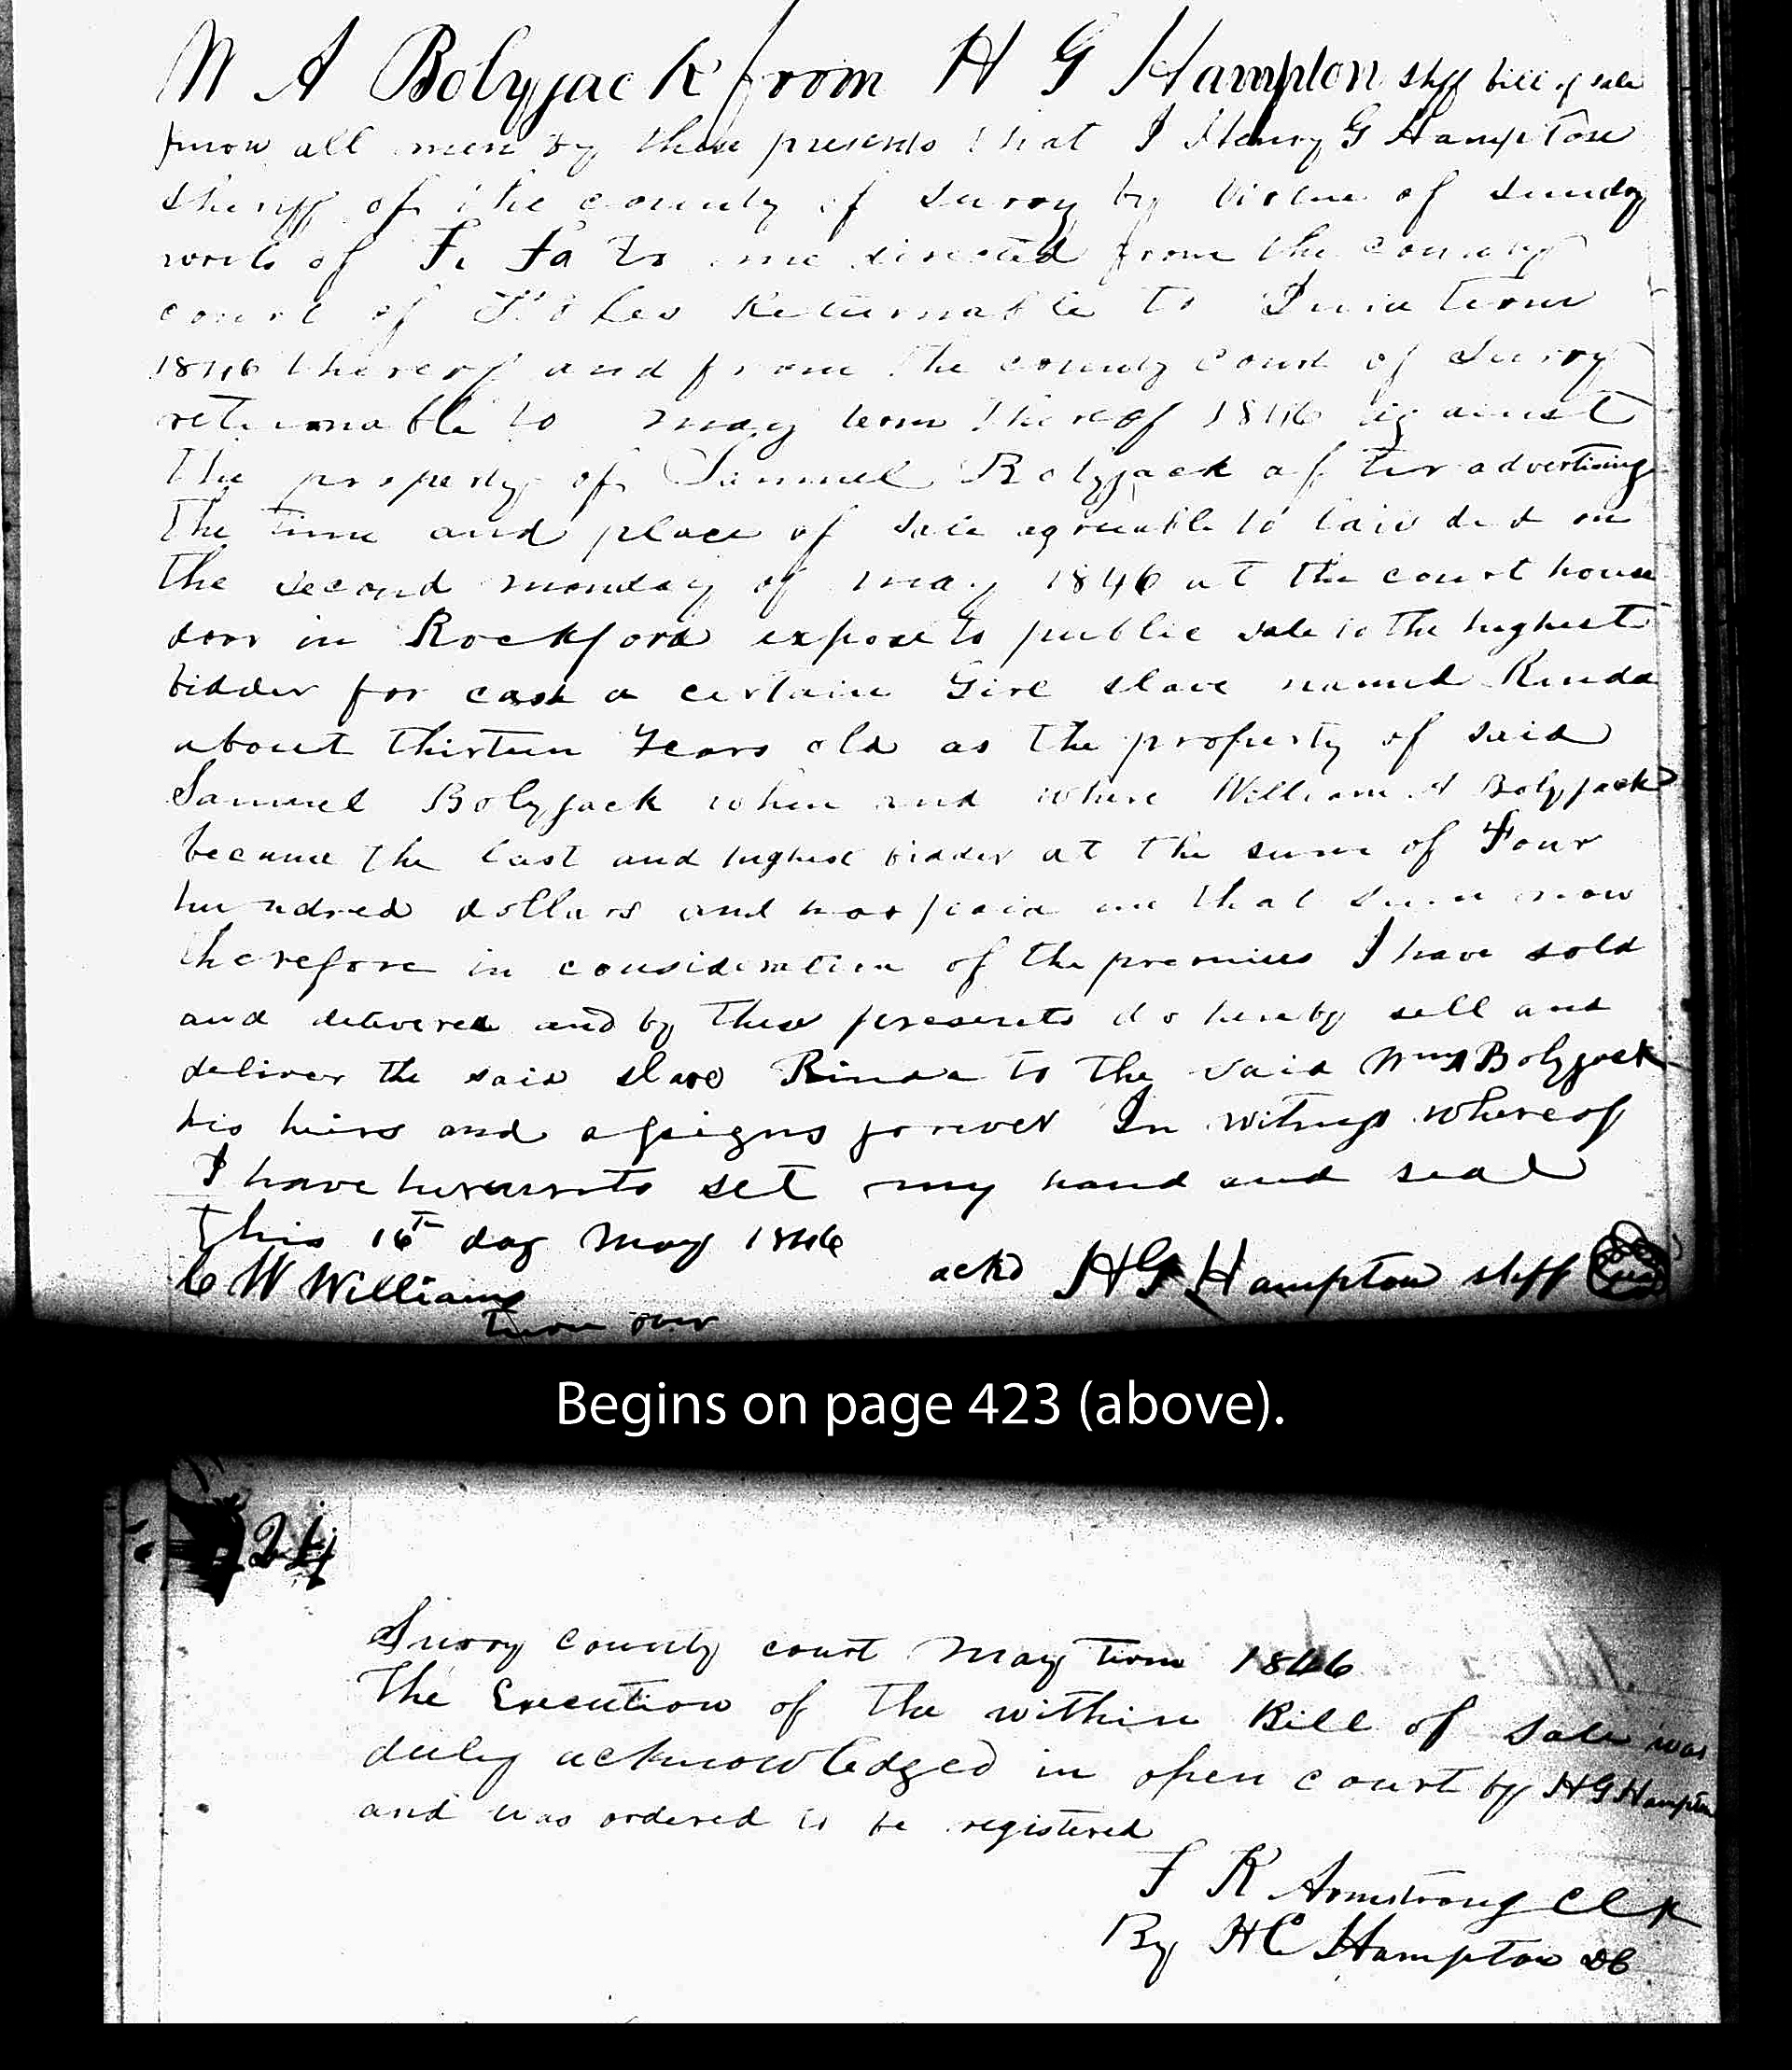 W A Bolyjack from H G Hampton shff bill of sale
know all men by these presents that I Henry G Hampton
sheriff of the county of Surry by virtue of sundry
writs of Fi Fa to me directed from the county
court of Stokes Returnable to June term
1846 thereof and from the county court of Surry
returnable to may term thereof 1846 against
the property of Samuel Bolyjack after advertising
the time and place of sale agreeable to law did on
the second monday of may 1846 at the court house
door in Rockford expose to public sale to the highest
bidder for cash a certain Girl slave named Rinda
about thirteen Years old as the property of said
Samuel Bolyjack when and where William A Bolyjack
became the last and highest bidder at the sum of Four
hundred dollars and has paid me that sum now
therefore in consideration of the premises I have sold
and delivered and by these presents do hereby sell and
deliver the said slave Rinda to the said Wm A Bolyjack
his heirs and assigns forever In witness whereof
I have hereunto set my hand and seal
this 16th day may 1846
C W Williams ackd H G Hampton shff seal
turn over
Begins on page 423 (above).
424
Surry county court May term 1846
The Execution of the within Bill of sale was
duly acknowledged in open court by H G Hampton
and was ordered to be registered
F K Armstrong Clk
By H C Hampton DC